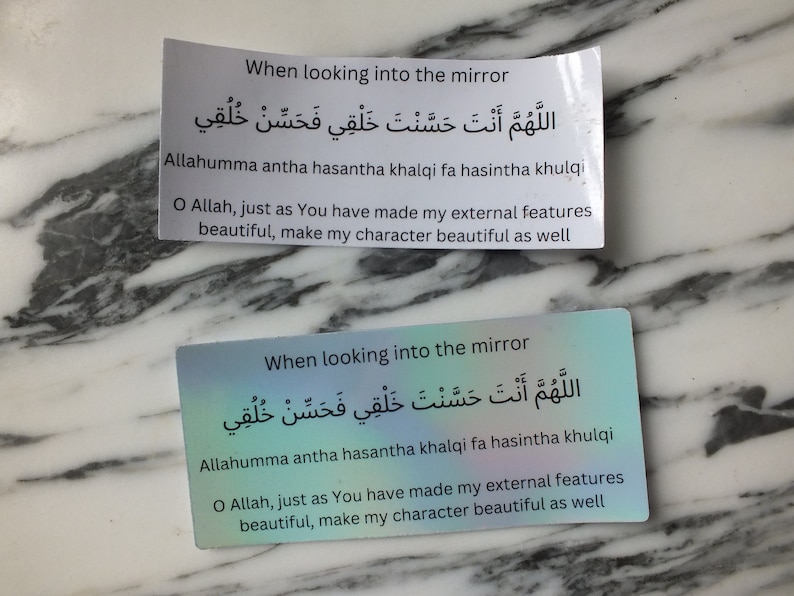 When looking into the mirror
اللَّهُمَّ أَنْتَ حَسَّنْتَ خَلْقِي فَحَسِّنْ خُلُقِي
Allahumma antha hasantha khalqi fa hasintha khulqi
O Allah, just as You have made my external features
beautiful, make my character beautiful as well
When looking into the mirror
اللَّهُمَّ أَنْتَ حَسَّنْتَ خَلْقِي فَحَسِّنْ خُلُقِي
Allahumma antha hasantha khalqi fa hasintha khulqi
O Allah, just as You have made my external features
beautiful, make my character beautiful as well